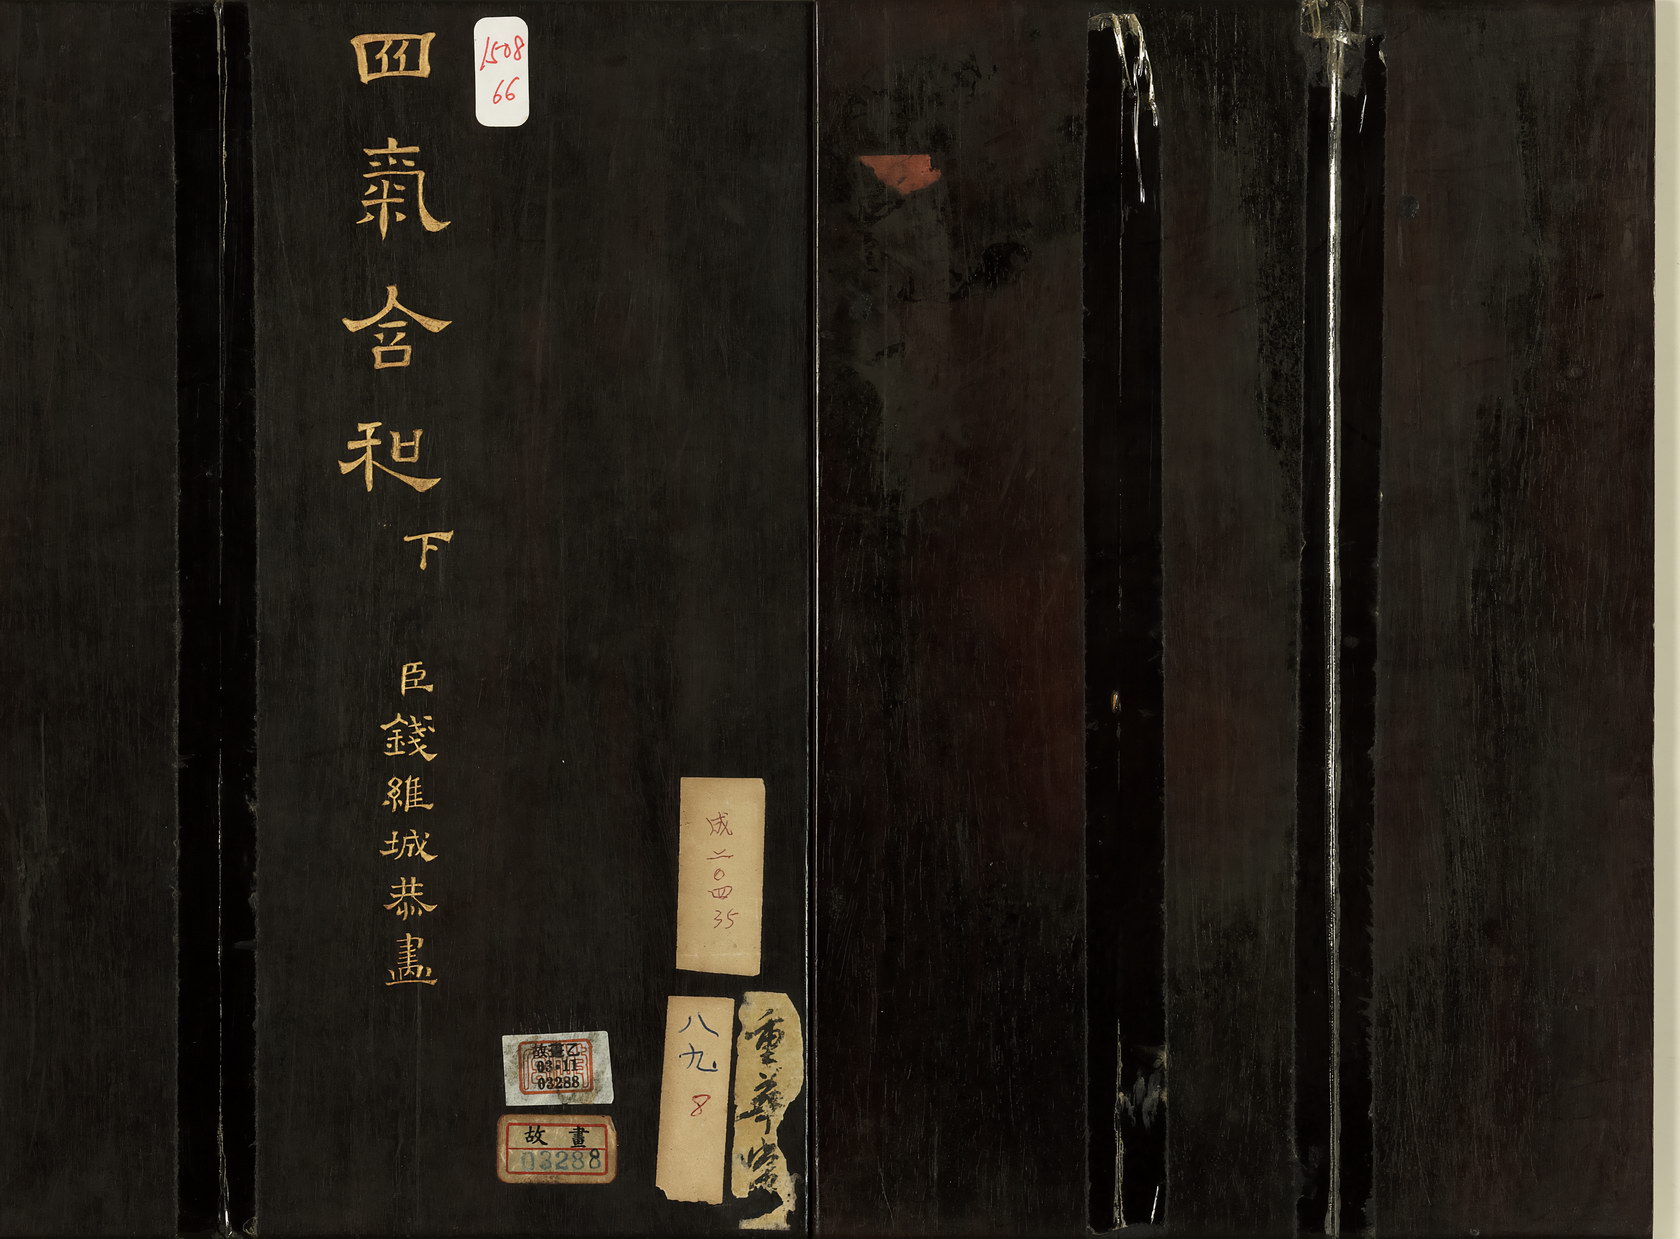 四氣含和 下
臣錢維城恭畫
1508
66
成二〇四
35
八九
8
重華宮
故畫乙
03-11
03288
故畫
03288